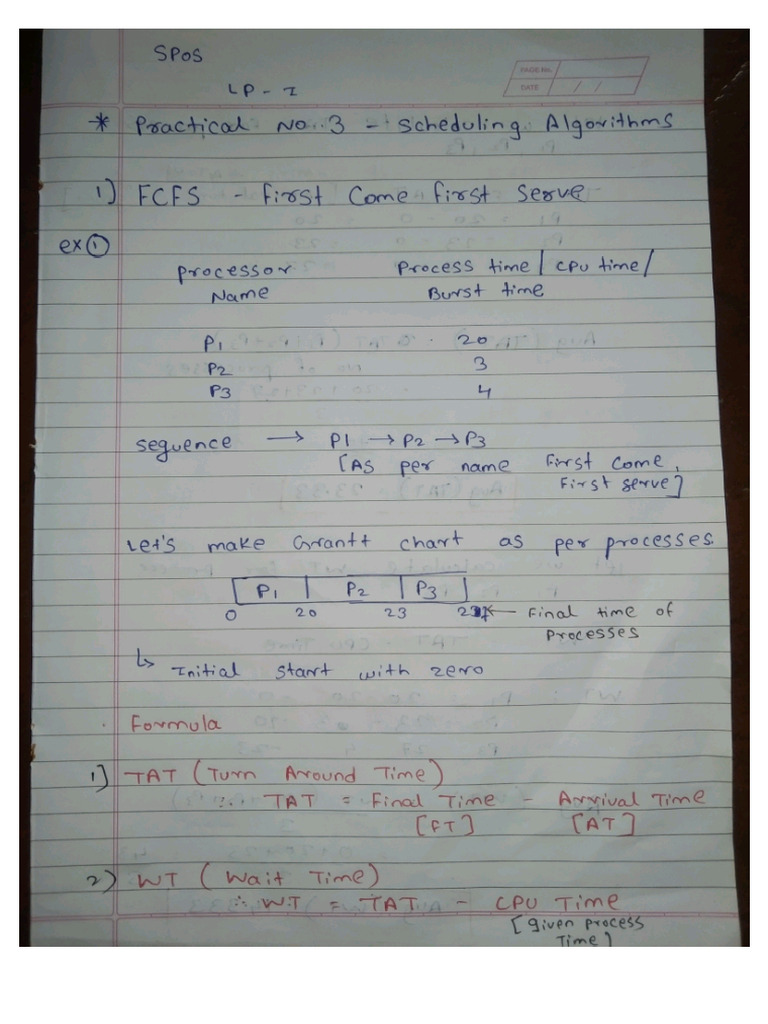 SPOS
LP - I
PAGE No.
DATE / /
* Practical No. 3 - Scheduling Algorithms
1) FCFS - First Come First Serve
ex ①
Processor Process time / CPU time /
Name Burst time
P1 20
P2 3
P3 4
sequence → P1 → P2 → P3
[As per name First Come,
First serve]
Let's make Grantt chart as per processes.
P1 P2 P3
0 20 23 27 ← Final time of
Processes
↳ Initial start with zero
Formula
1) TAT (Turn Around Time)
∴ TAT = Final Time - Arrival Time
[FT] [AT]
2) WT ( Wait Time)
∴ WT = TAT - CPU Time
[given process
Time]